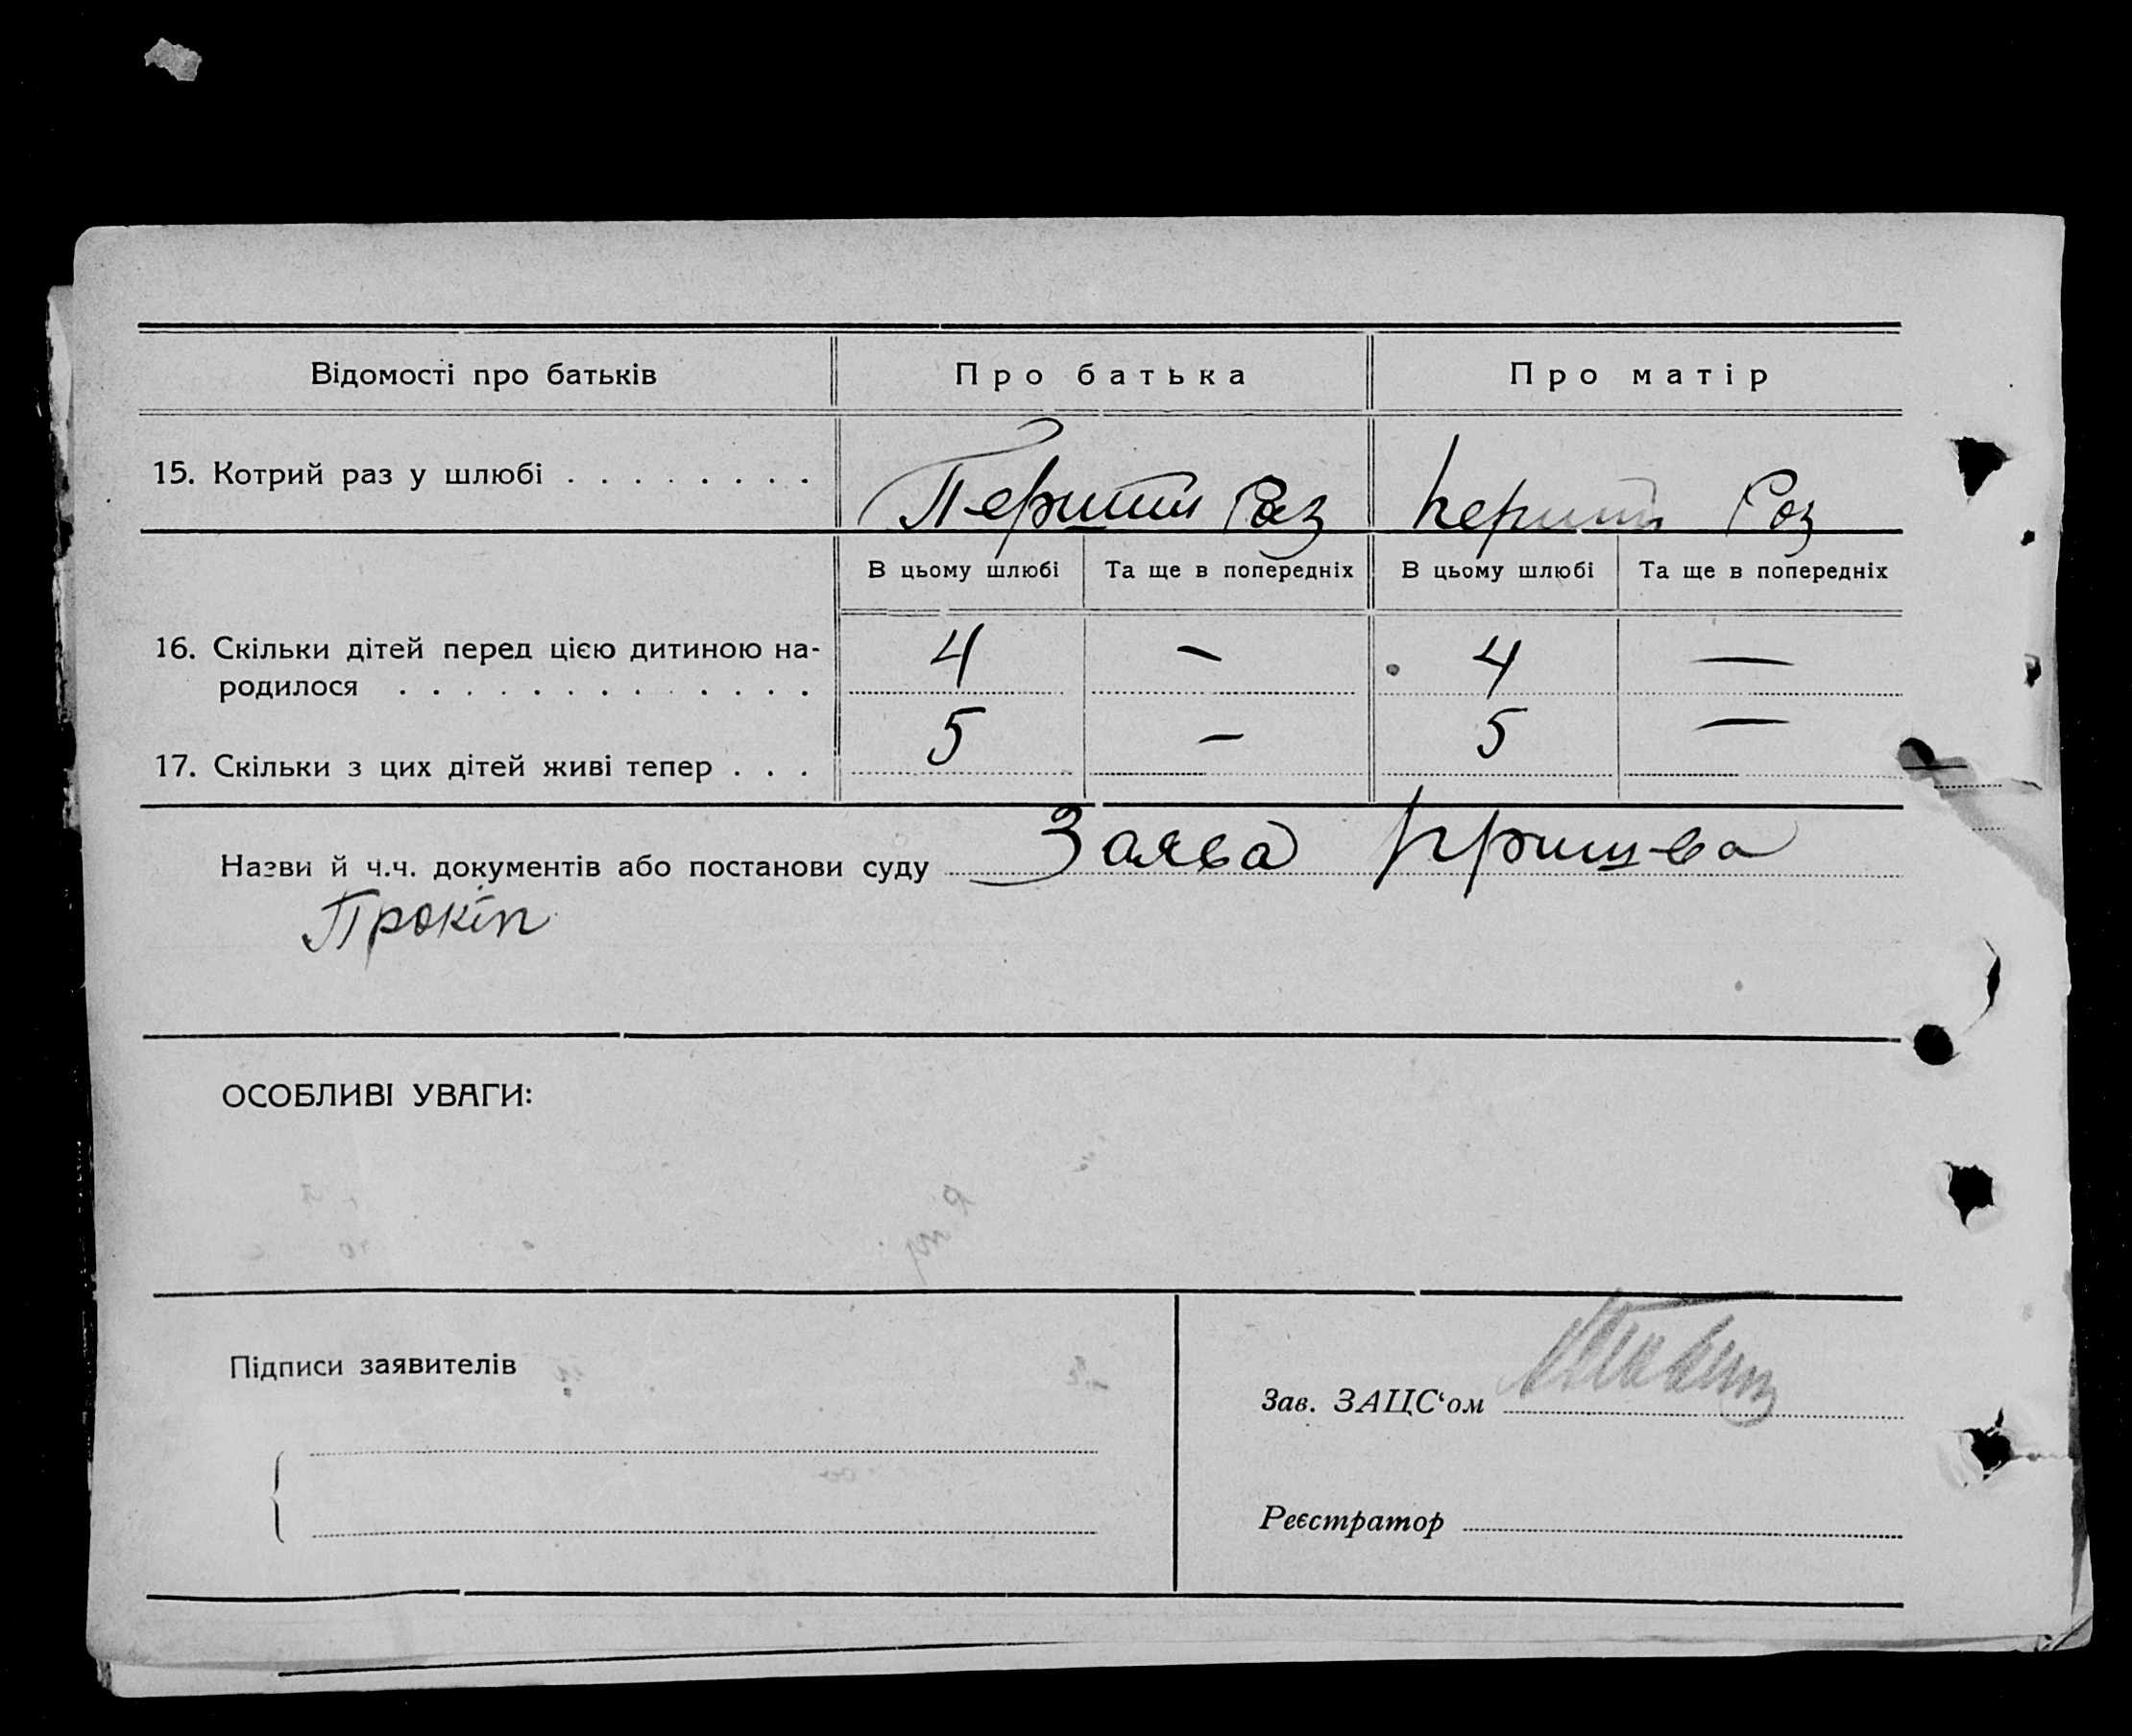 Відомості про батьків Про батька Про матір
15. Котрий раз у шлюбі . . . . . . . . Перший Раз перший Раз
В цьому шлюбі Та ще в попередніх В цьому шлюбі Та ще в попередніх
16. Скільки дітей перед цією дитиною на-
родилося . . . . . . . . . . . . . 4 — 4 —
17. Скільки з цих дітей живі тепер . . . 5 — 5 —
Назви й ч.ч. документів або постанови суду Заява
Прокіп
ОСОБЛИВІ УВАГИ:
Підписи заявителів
Зав. ЗАЦС‘ом
Реєстратор